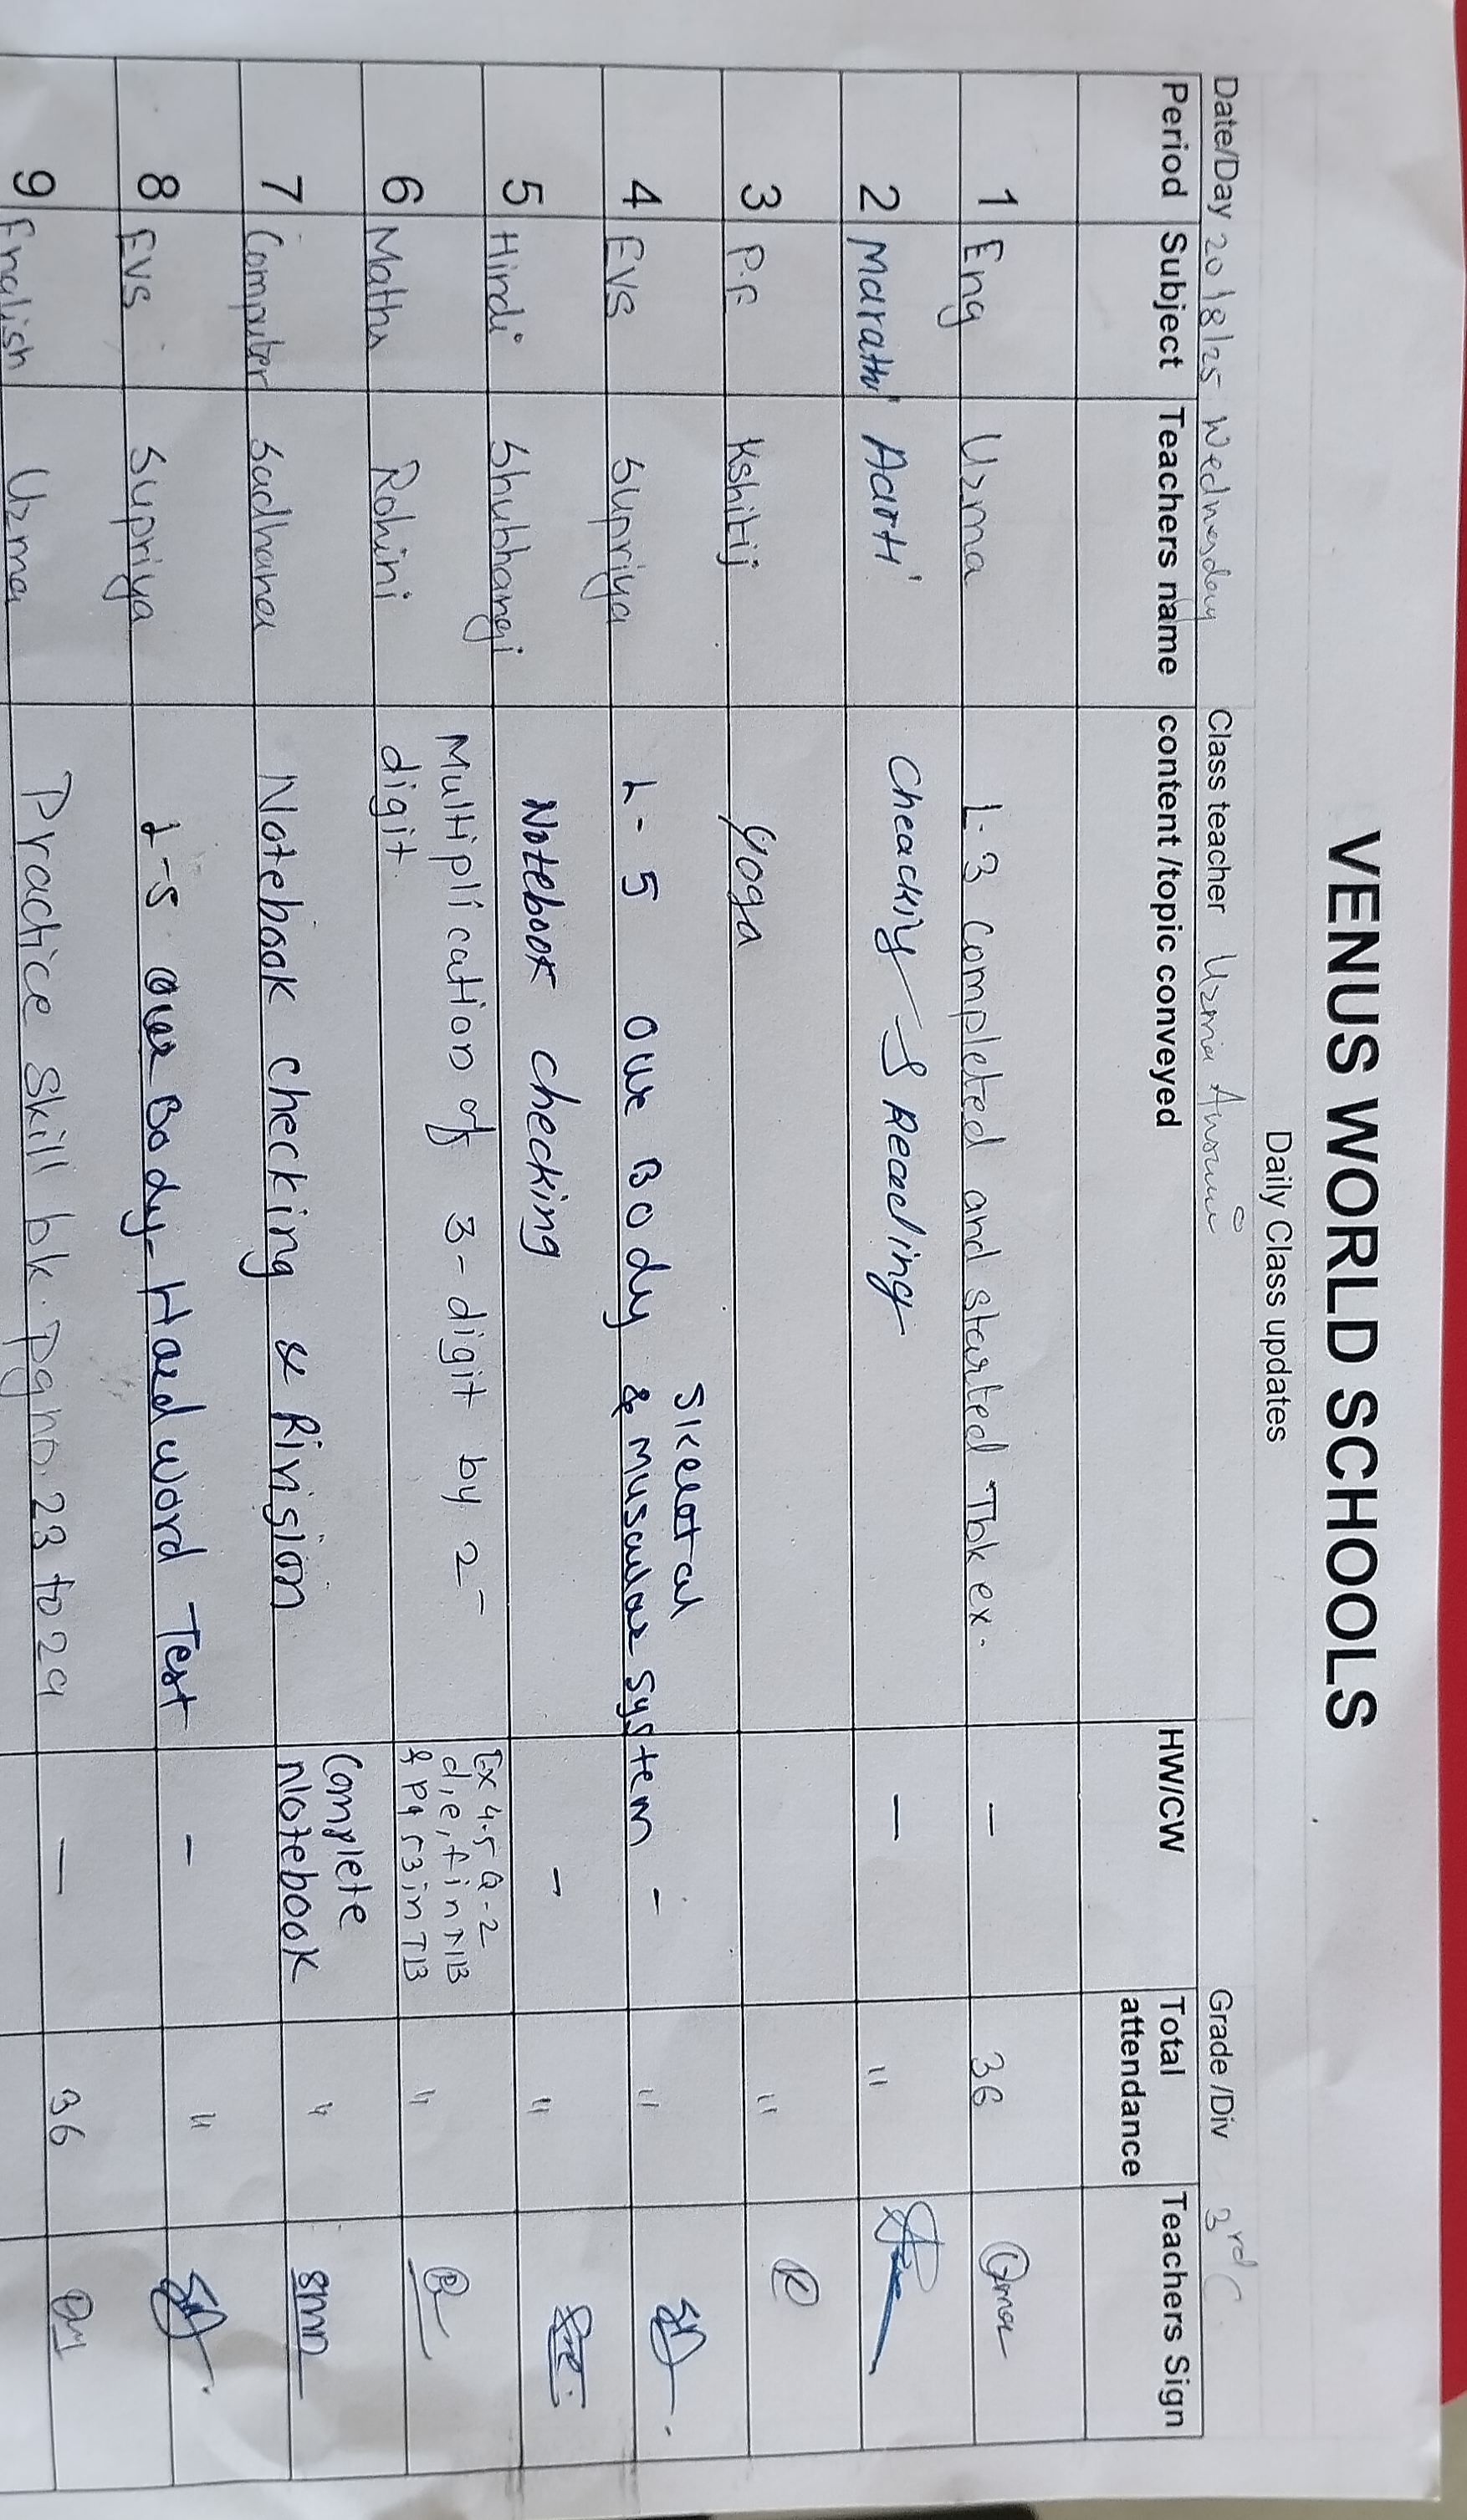 VENUS WORLD SCHOOLS
Daily Class updates
Date/Day 20/8/25 Wednesday Class teacher Uzma Ansari Grade /Div 3rd C
Period Subject Teachers name content /topic conveyed HW/CW Total attendance Teachers Sign
1 Eng Uzma L-3 completed and started Tbk ex. - 36
2 Marathi Aarti Cheackiy Reading - "
3 P.F Kshitij Yoga "
4 EVS Supriya L-5 Our Body & Skeletal Muscular System - "
5 Hindi Shubhangi Notebook checking - "
6 Maths Rohini Multiplication of 3-digit by 2-digit. Ex 4.5 Q-2 d,e,f in NB & Pg 53 in TB "
7 Computer Sadhana Notebook checking & Rivision Complete Notebook "
8 EVS Supriya L-5 Our Body- Hard word Test - "
9 English Uzma Practice Skill bk. Pg no. 23 to 29 - 36